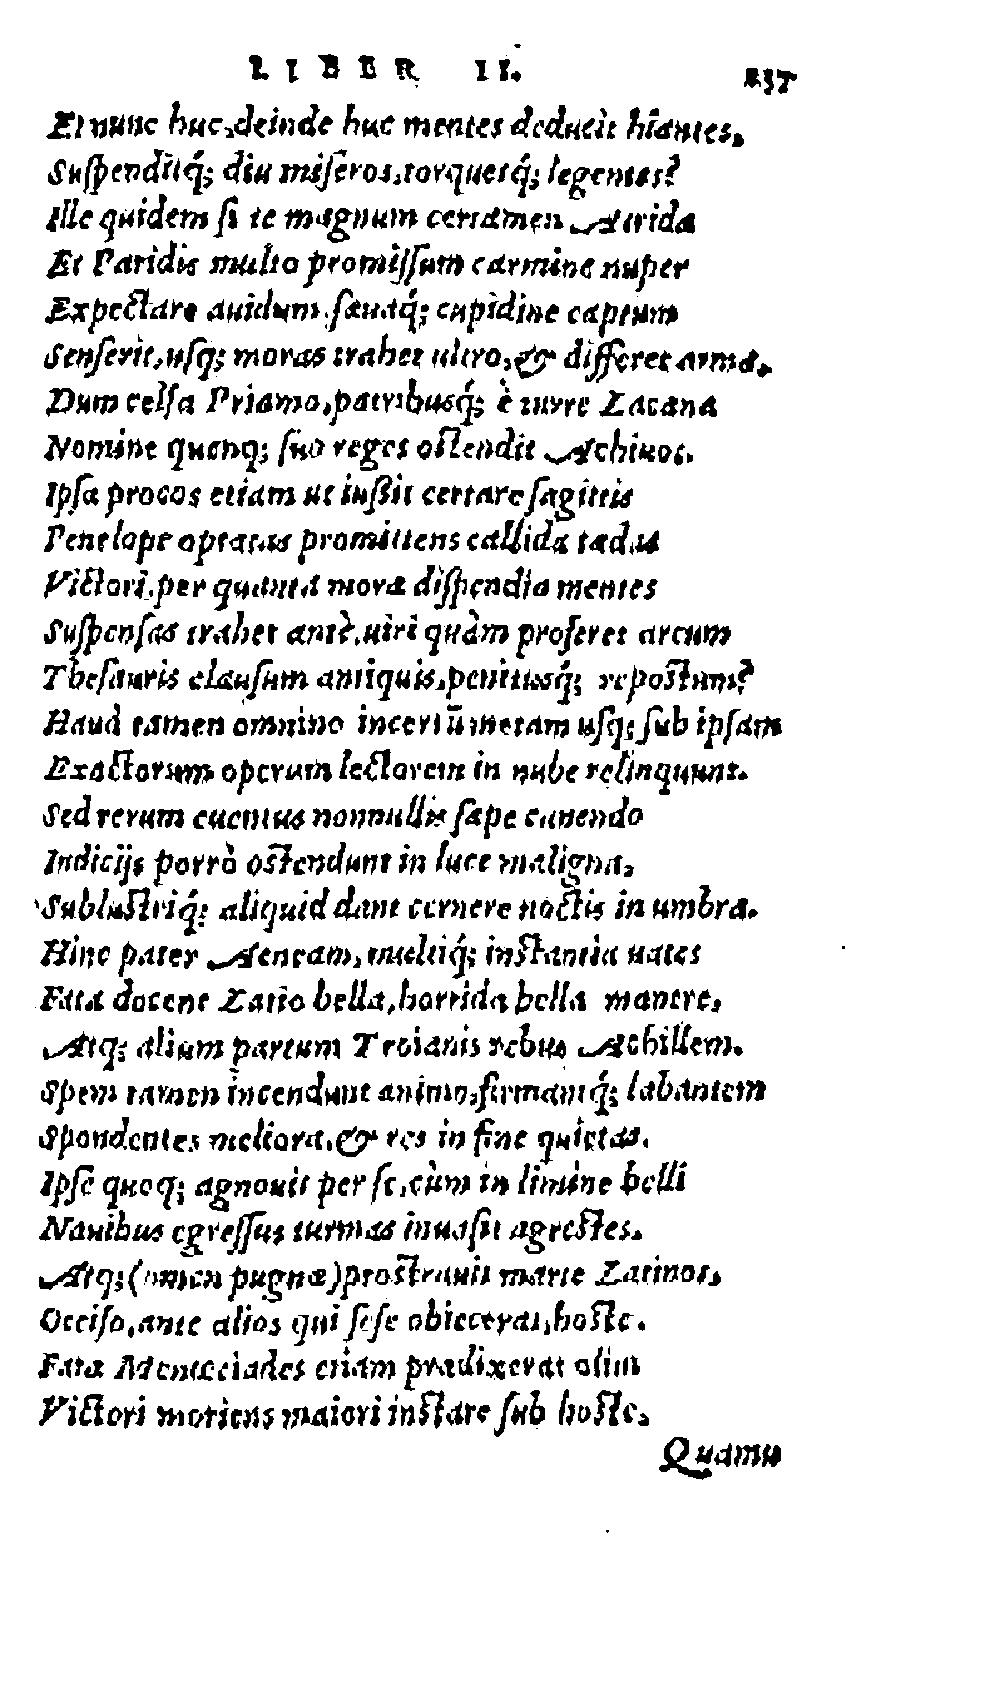 LIBER II. 237
Et nunc huc, deinde huc mentes deducit hiantes,
Suſpenditq́; diu miſeros, torquetq́; legentes?
Ille quidem ſi te magnum certamen Atrida
Et Paridis multo promiſſum carmine nuper
Expectare auidum, ſæuaq́; cupidine captum
Senſerit, uſq; moras trahet ultro, & differet arma,
Dum celſa Priamo, patribusq́; è turre Lacæna
Nomine quenq; ſuo reges oſtendit Achiuos.
Ipſa procos etiam ut iußit certare ſagittis
Penelope optatas promittens callida tædas
Victori, per quanta moræ diſpendia mentes
Suſpenſas trahet antè, uiri quàm proferet arcum
Theſauris clauſum antiquis, penitusq́; repoſtum?
Haud tamen omnino incertũ metam uſq; ſub ipſam
Exactorum operum lectorem in nube relinquunt.
Sed rerum euentus nonnullis ſæpe canendo
Indicijs porrò oſtendunt in luce maligna,
Subluſtriq́; aliquid dant cernere noctis in umbra.
Hinc pater Aeneam, multiq́; inſtantia uates
Fata docent Latio bella, horrida bella manere,
Atq; alium partum Troianis rebus Achillem.
Spem tamen incendunt animo, firmantq́; labantem
Spondentes meliora, & res in fine quietas.
Ipſe quoq; agnouit per ſe, cùm in limine belli
Nauibus egreſſus turmas inuaſit agreſtes,
Atq; (omen pugnæ) proſtrauit marte Latinos,
Occiſo, ante alios qui ſeſe obiecerat, hoſte.
Fata Menœciades etiam prædixerat olim
Victori moriens maiori inſtare ſub hoſte,
Quamu